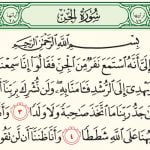 سُورَةُ الجِنِّ
بِسْمِ اللَّهِ الرَّحْمَٰنِ الرَّحِيمِ
أَنَّهُ اسْتَمَعَ نَفَرٌ مِنَ الْجِنِّ فَقَالُوا إِنَّا سَمِعْنَا
يَهْدِي إِلَى الرُّشْدِ فَآمَنَّا بِهِ وَلَنْ نُشْرِكَ بِرَبِّنَا
جَدُّ رَبِّنَا مَا اتَّخَذَ صَاحِبَةً وَلَا وَلَدًا ٣
عَلَى اللَّهِ شَطَطًا ٤ وَأَنَّا ظَنَنَّا أَنْ لَنْ